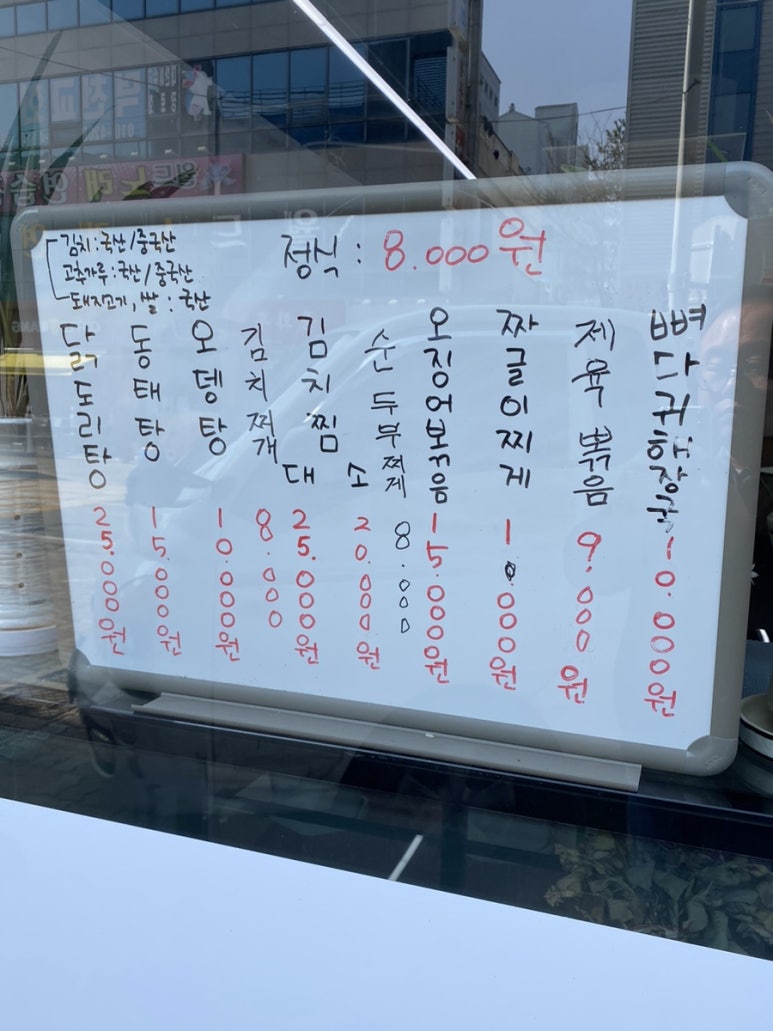 김치:국산/중국산
고추가루:국산/중국산
돼지고기,쌀:국산
정식: 8.000원
닭도리탕 25.000원
동태탕 15.000원
오뎅탕 10.000원
김치찌개 8.000
김치찜 대 25.000원
소 20.000원
순두부찌게 8.000
오징어볶음 15.000원
짜글이찌게 10.000원
제육볶음 9.000원
뼈다귀해장국 10.000원